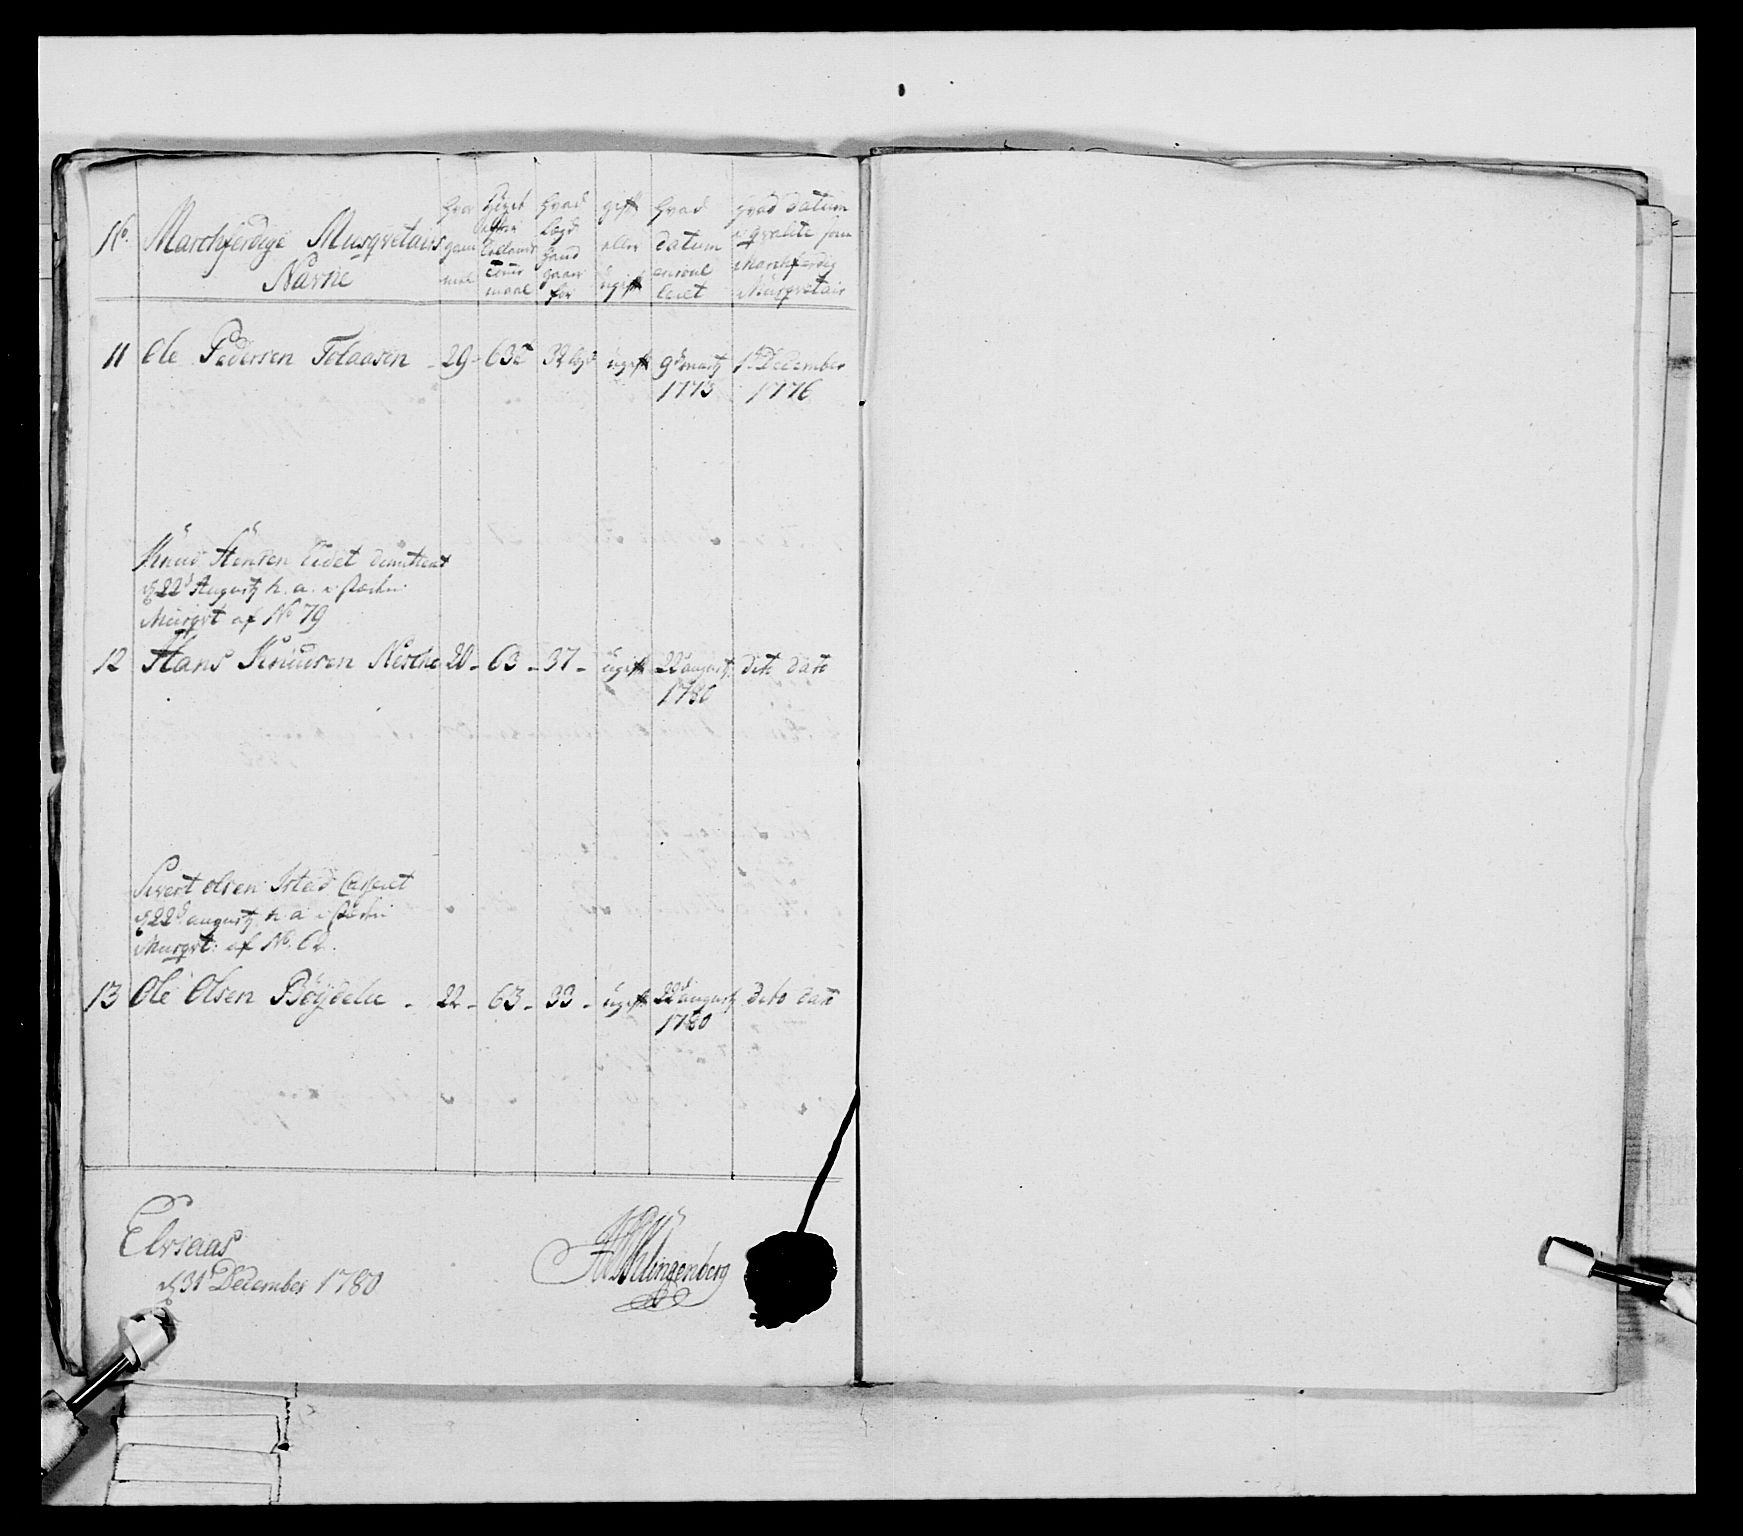 No. Marchferdige Musqvetairs Navne
hvor gam mel
hvad lægd hand gaar for
gift eller ugift
hvad datum enroul leret
hvad datum i qvalité som Marchferdig Musqvetair
11 Ole Pedersen Tolaasen - 29 - 63 32 lægd ugift 9d marty 1773 1t December 1776
Knud Stensen Eidet dimitteret
d 22d Augusty h. a. i stæden
Musqvt af No 79
12 Hans Knudsen Nesthe 20 - 63 - 37 - ugift 22d augusty 1780 dito dato
Sivert olsen Istad Casseret
d 22d augusty h. a i stæden
Musqvt: af No. 62.
13 Ole Olsen Bøydelie - 22 - 63 - 33 - ugift 22d augusty 1780 dito dato
Elvsaas
d 31t December 1780
Klingenberg